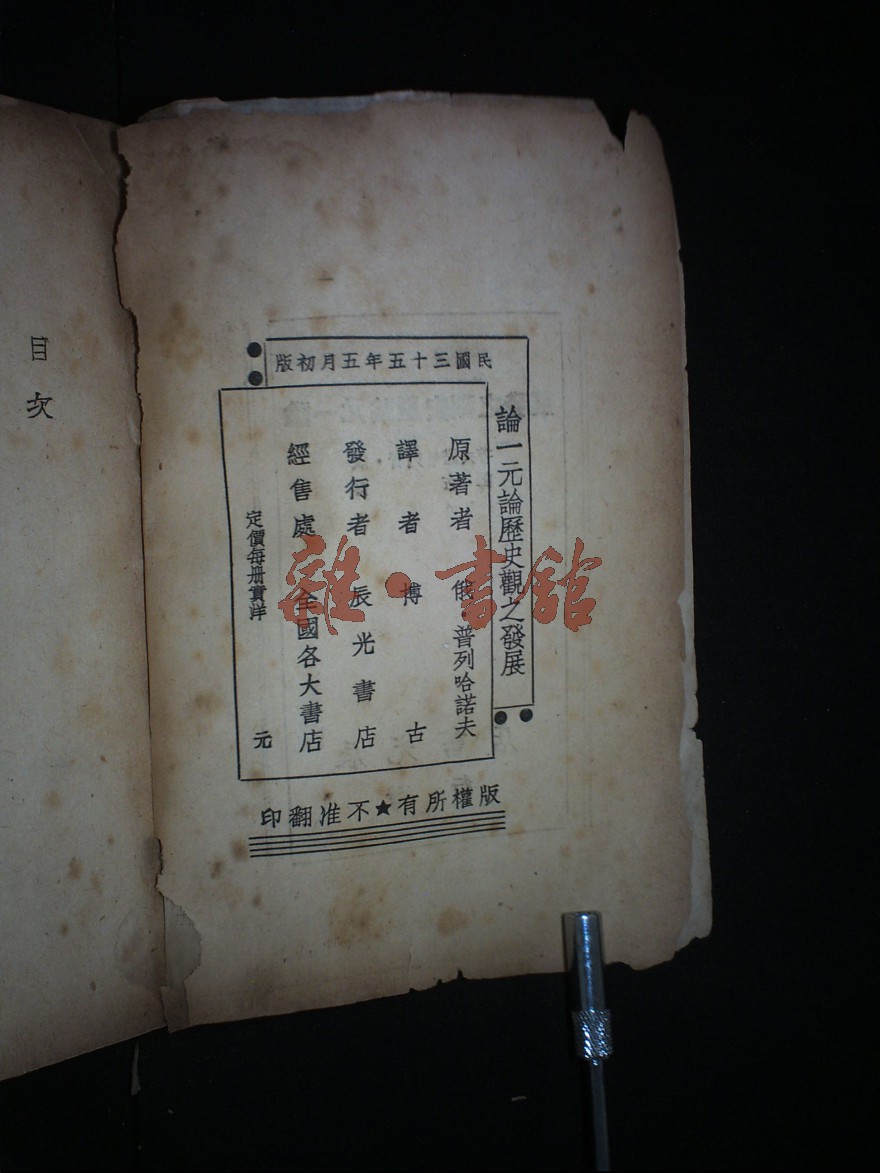 民國三十五年五月初版
論一元論歷史觀之發展
原著者 俄·普列哈諾夫
譯者 博古
發行者 辰光書店
經售處 全國各大書店
定價每册實洋 元
版權所有★不准翻印
目次
雜·書館